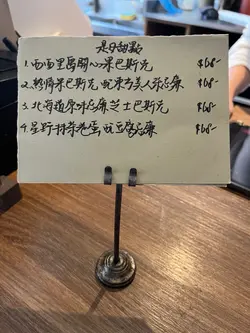 是日甜點
1. 西西里島開心果巴斯克 $68-
2. 熱情果巴斯克 配東方美人茶忌廉 $68-
3. 北海道原味忌廉芝士巴斯克 $68-
4. 星野抹茶卷蛋 配豆腐忌廉 $68-